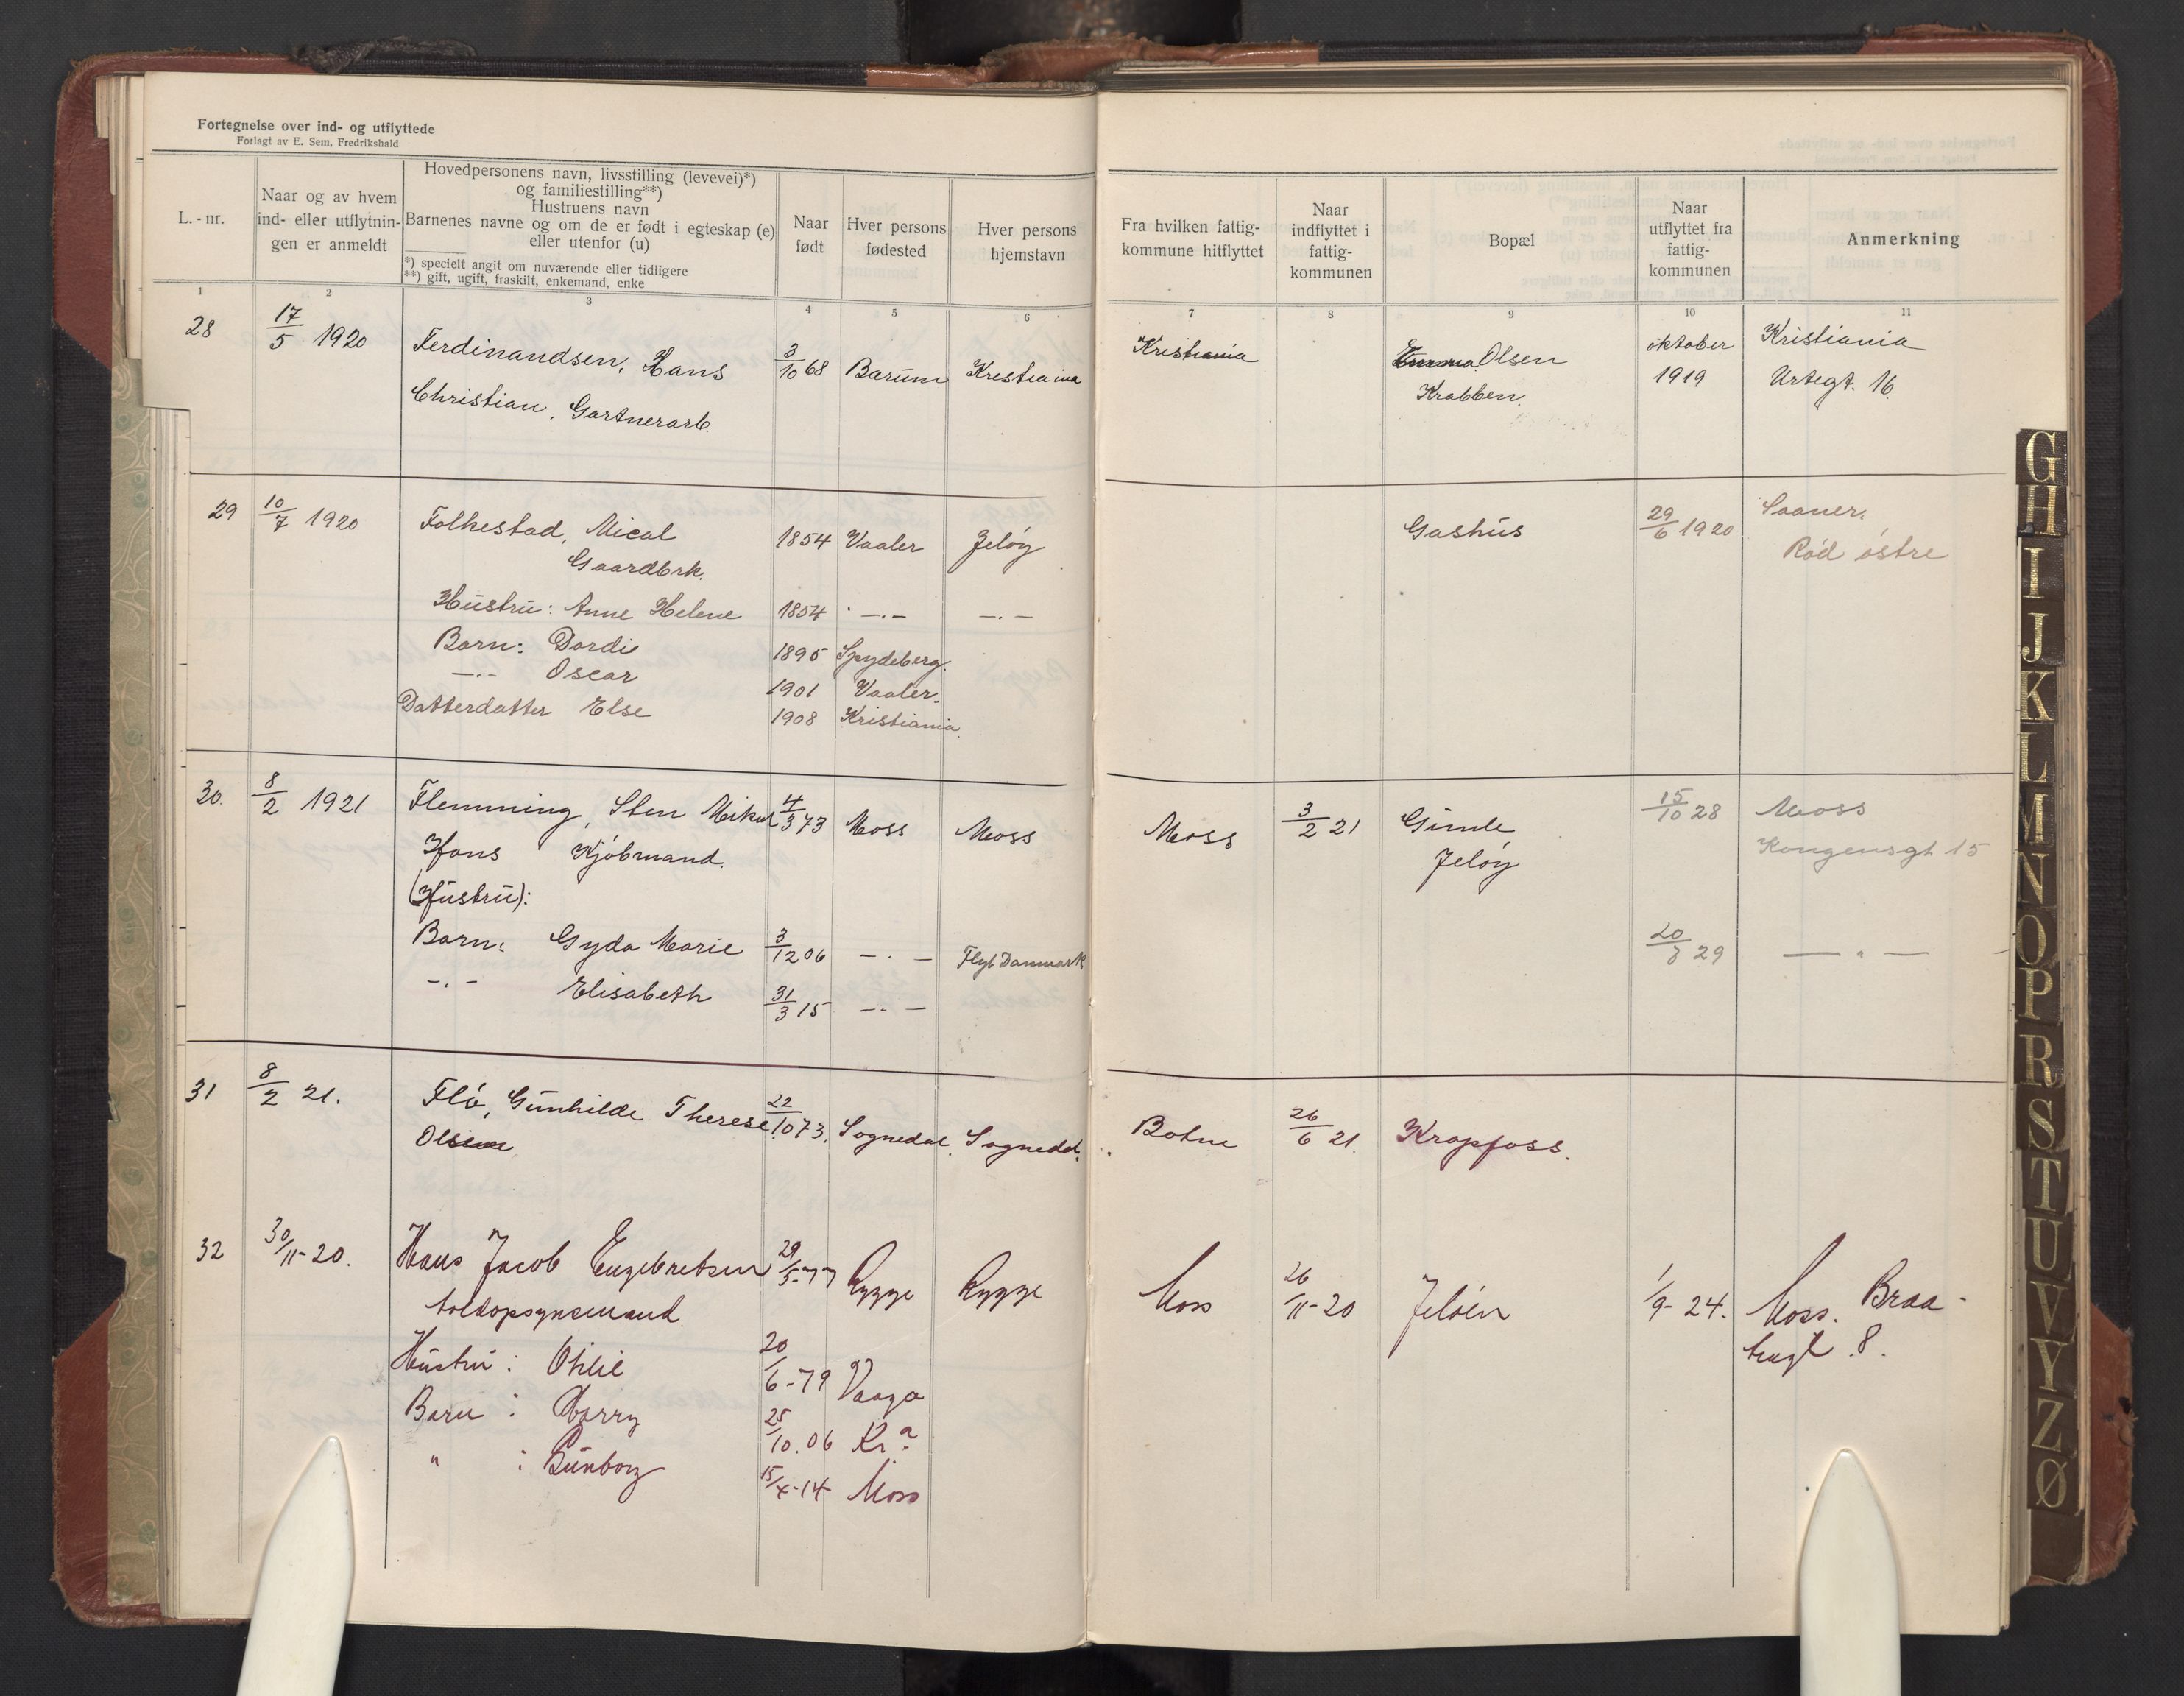 Fortegnelse over ind- og utflyttede
Forlagt av E. Sem, Fredrikshald
L.-nr.
Naar og av hvem ind- eller utflytnin-gen er anmeldt
Hovedpersonens navn, livsstilling (levevei)*)
og familiestilling**)
Hustruens navn
Barnenes navne og om de er født i egteskap (e)
eller utenfor (u)
*) specielt angit om nuværende eller tidligere
**) gift, ugift, fraskilt, enkemand, enke
Naar født
Hver persons fødested
Hver persons hjemstavn
Fra hvilken fattig-kommune hitflyttet
Naar indflyttet i fattig-kommunen
Bopæl
Naar utflyttet fra fattig-kommunen
Anmerkning
1 2 3 4 5 6 7 8 9 10 11
28 17/5 1920 Ferdinandsen, Hans 3/10 68 Bærum Krestiania Kristiania Olsen oktober Kristiania
Christian, Gartnerarb. Krabben. 1919 Urtegt. 16
29 10/7 1920 Folkestad, Mical 1854 Vaaler Jeløy Gashus 29/6 1920 Saaner.
Gaardbrk. Rød østre
Hustru: Anne Helene 1854 -.- -.-
Barn: Dordie 1895 Spydeberg.
-.- Oscar 1901 Vaaler.
Datterdatter Else 1908 Kristiania.
30. 8/2 1921 Flemming, Sten Mikal 4/3 73 Moss Moss Moss 3/2 21 Gimle 15/10 28 Moss
Hans Kjøbmand. Jeløy Kongensgt 15
(Hustru):
Barn: Gyda Marie 3/12 06 -.- Flyt Danmark 20/8 29 -"-
-.- Elisabeth 31/3 15 -.-
31 8/2 21. Flø, Gunhilde Therese 22/10 73. Sognedal. Sognedal. Botne 26/6 21. Krapfoss.
Olsine
32 30/11-20. Hans Jacob Engebretsen 29/5-77 Rygge Rygge Moss 26/11-20 Jeløen 1/9-24. Moss. Braa-
toldopsynsmand tengt. 8.
Hustru: Otilie 20/6-79 Vaaga
Barn: Dorry 25/10.06 Kr.a
" : Gunborg 15/4-14 Moss
G
H
I
J
K
L
M
N
O
P
R
S
T
U
V
Y
Z
Ø